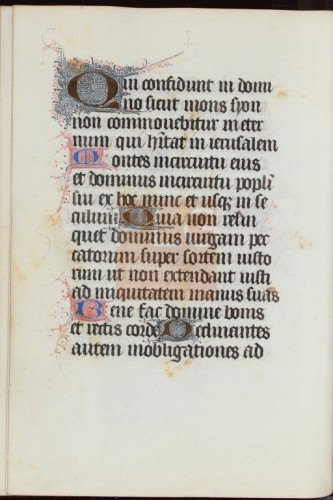 Qui confidunt in domi
no sicut mons syon
non commouebitur in eter
num qui hitat in ierusalem
Montes in circuitu eius
et dominus in circuitu popli
sui ex hoc nunc et usqz in se
culum Quia non relin
quet dominus uirgam pec
catorum super sortem iusto
rum ut non extendant iusti
ad iniquitatem manus suas
Bene fac domine bonis
et rectis corde Declinantes
autem in obligationes ad